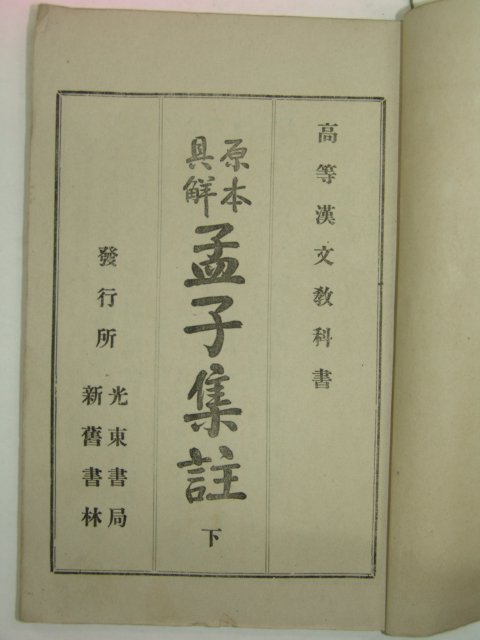 高等漢文教科書
原本
具觧
孟子集註
下
發行所
光東書局
新舊書林